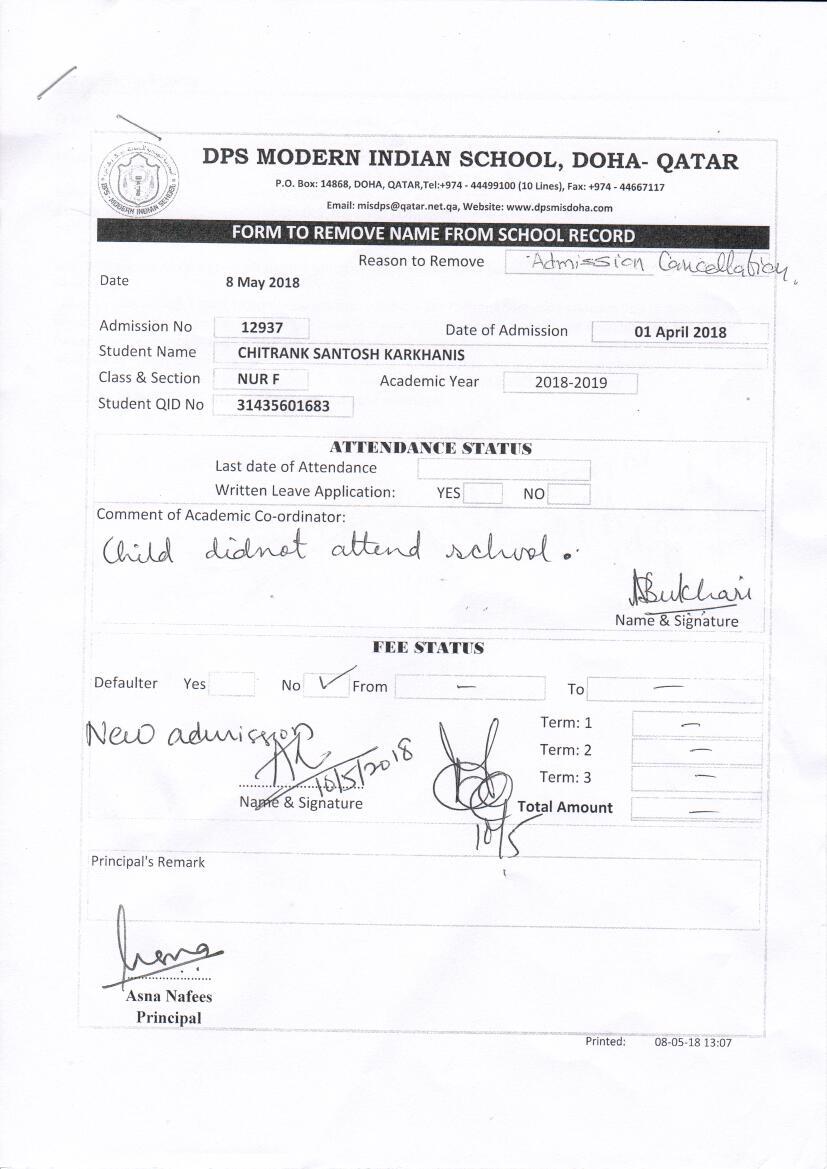 DPS MODERN INDIAN SCHOOL, DOHA- QATAR
P.O. Box: 14868, DOHA, QATAR,Tel:+974 - 44499100 (10 Lines), Fax: +974 - 44667117
Email: misdps@qatar.net.qa, Website: www.dpsmisdoha.com
FORM TO REMOVE NAME FROM SCHOOL RECORD
Reason to Remove Admission Cancellation.
Date 8 May 2018
Admission No 12937 Date of Admission 01 April 2018
Student Name CHITRANK SANTOSH KARKHANIS
Class & Section NUR F Academic Year 2018-2019
Student QID No 31435601683
ATTENDANCE STATUS
Last date of Attendance
Written Leave Application: YES NO
Comment of Academic Co-ordinator:
Child didnot attend school.
ABukhari
Name & Signature
FEE STATUS
Defaulter Yes No ✓ From — To —
New admission
Term: 1 —
Term: 2 —
10/5/2018
Term: 3 —
Name & Signature
Total Amount —
10/5
Principal's Remark
Asna Nafees
Principal
Printed: 08-05-18 13:07